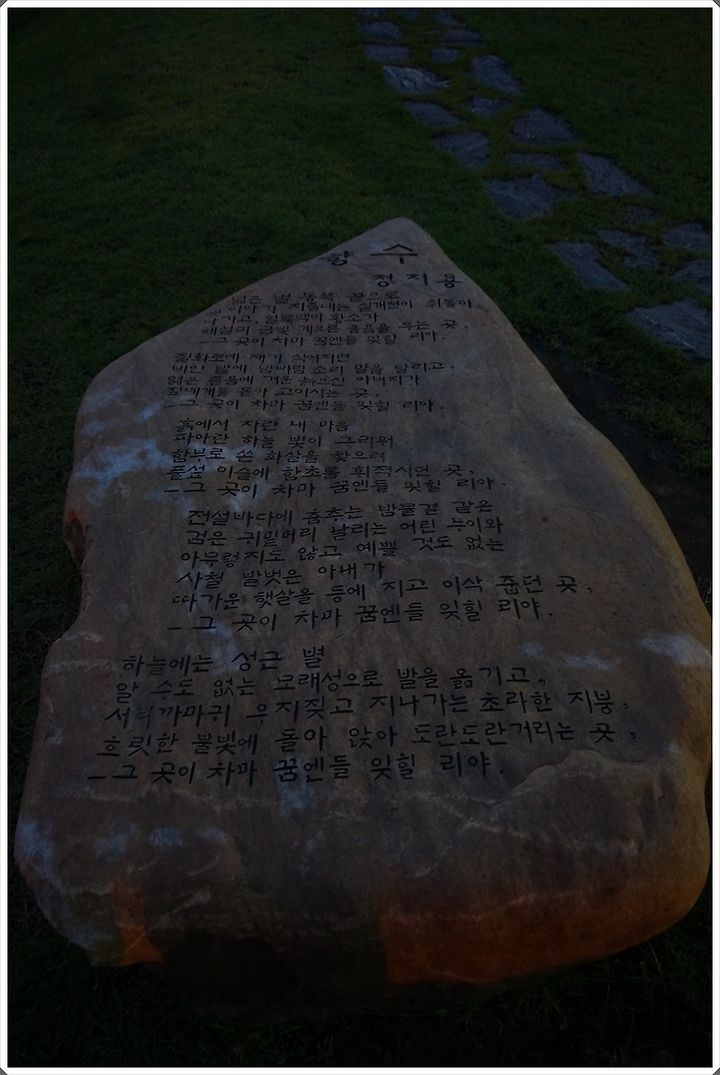 향수
정지용
넓은 벌 동쪽 끝으로
옛 이야기 지줄대는 실개천이 휘돌아
나가고, 얼룩백이 황소가
해설피 금빛 게으른 울음을 우는 곳,
—그 곳이 차마 꿈엔들 잊힐 리야.
질화로에 재가 식어지면
비인 밭에 밤바람 소리 말을 달리고,
엷은 졸음에 겨운 늙으신 아버지가
짚베개를 돋아 고이시는 곳,
—그 곳이 차마 꿈엔들 잊힐 리야.
흙에서 자란 내 마음
파아란 하늘 빛이 그리워
함부로 쏜 화살을 찾으려
풀섶 이슬에 함초롬 휘적시던 곳,
—그 곳이 차마 꿈엔들 잊힐 리야.
전설바다에 춤추는 밤물결 같은
검은 귀밑머리 날리는 어린 누이와
아무렇지도 않고 예쁠 것도 없는
사철 발벗은 아내가
따가운 햇살을 등에 지고 이삭 줍던 곳,
—그 곳이 차마 꿈엔들 잊힐 리야.
하늘에는 성근 별
알 수도 없는 모래성으로 발을 옮기고,
서리까마귀 우지짖고 지나가는 초라한 지붕,
흐릿한 불빛에 돌아 앉아 도란도란거리는 곳,
—그 곳이 차마 꿈엔들 잊힐 리야.